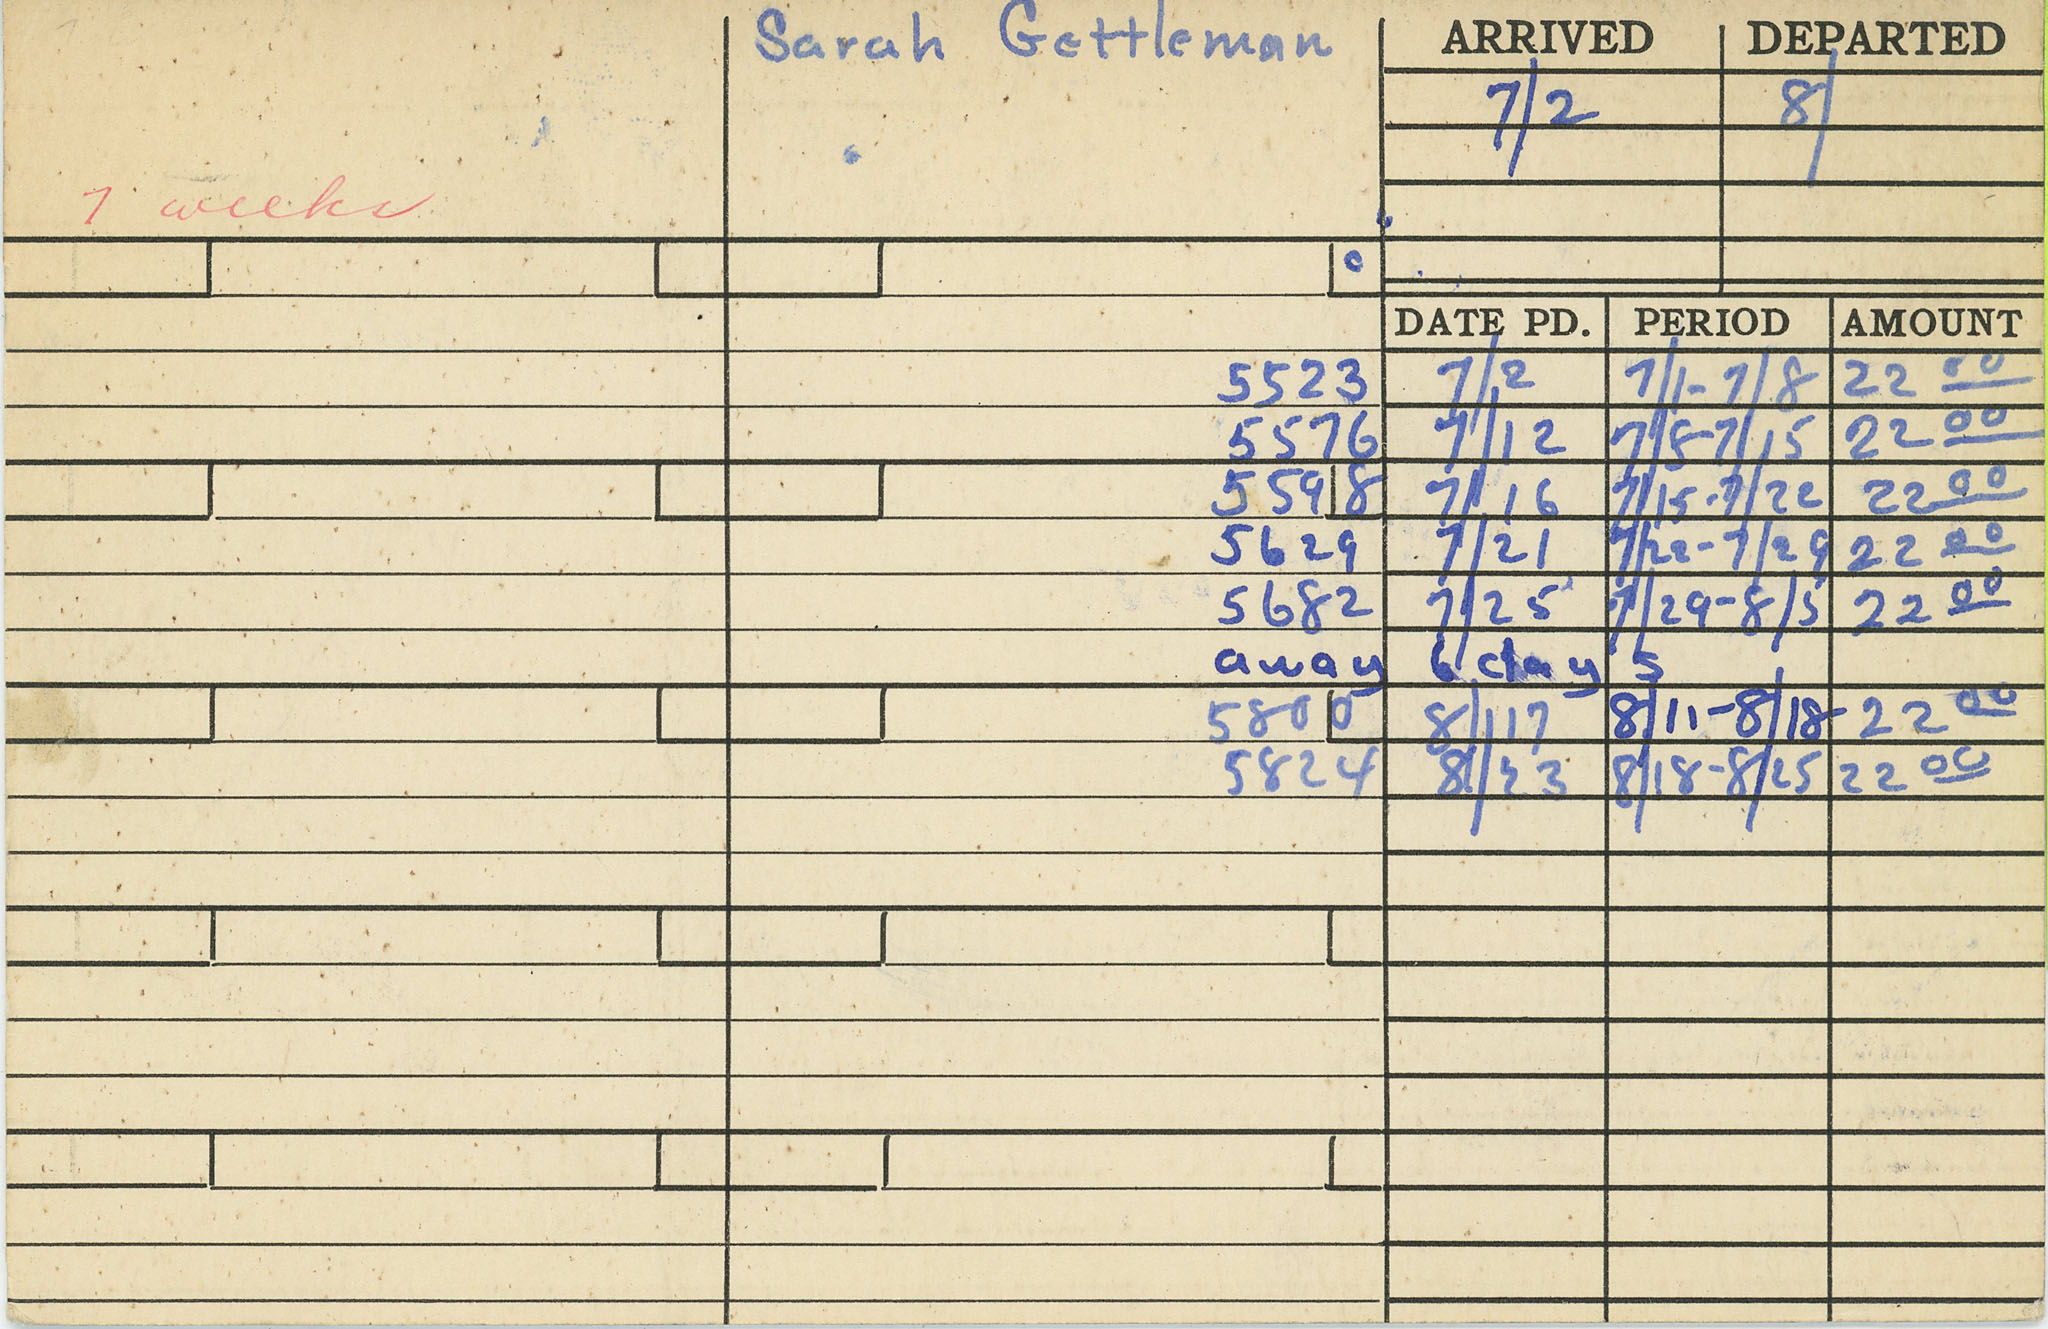 Sarah Gettleman ARRIVED DEPARTED
7/2 8/
7 weeks
DATE PD. PERIOD AMOUNT
5523 7/2 7/1-7/8 22 00
5576 7/12 7/8-7/15 22 00
5598 7/16 7/15-7/22 22 00
5629 7/21 7/22-7/29 22 00
5682 7/25 7/29-8/5 22 00
away 6 days
5800 8/17 8/11-8/18 22 00
5824 8/23 8/18-8/25 22 00